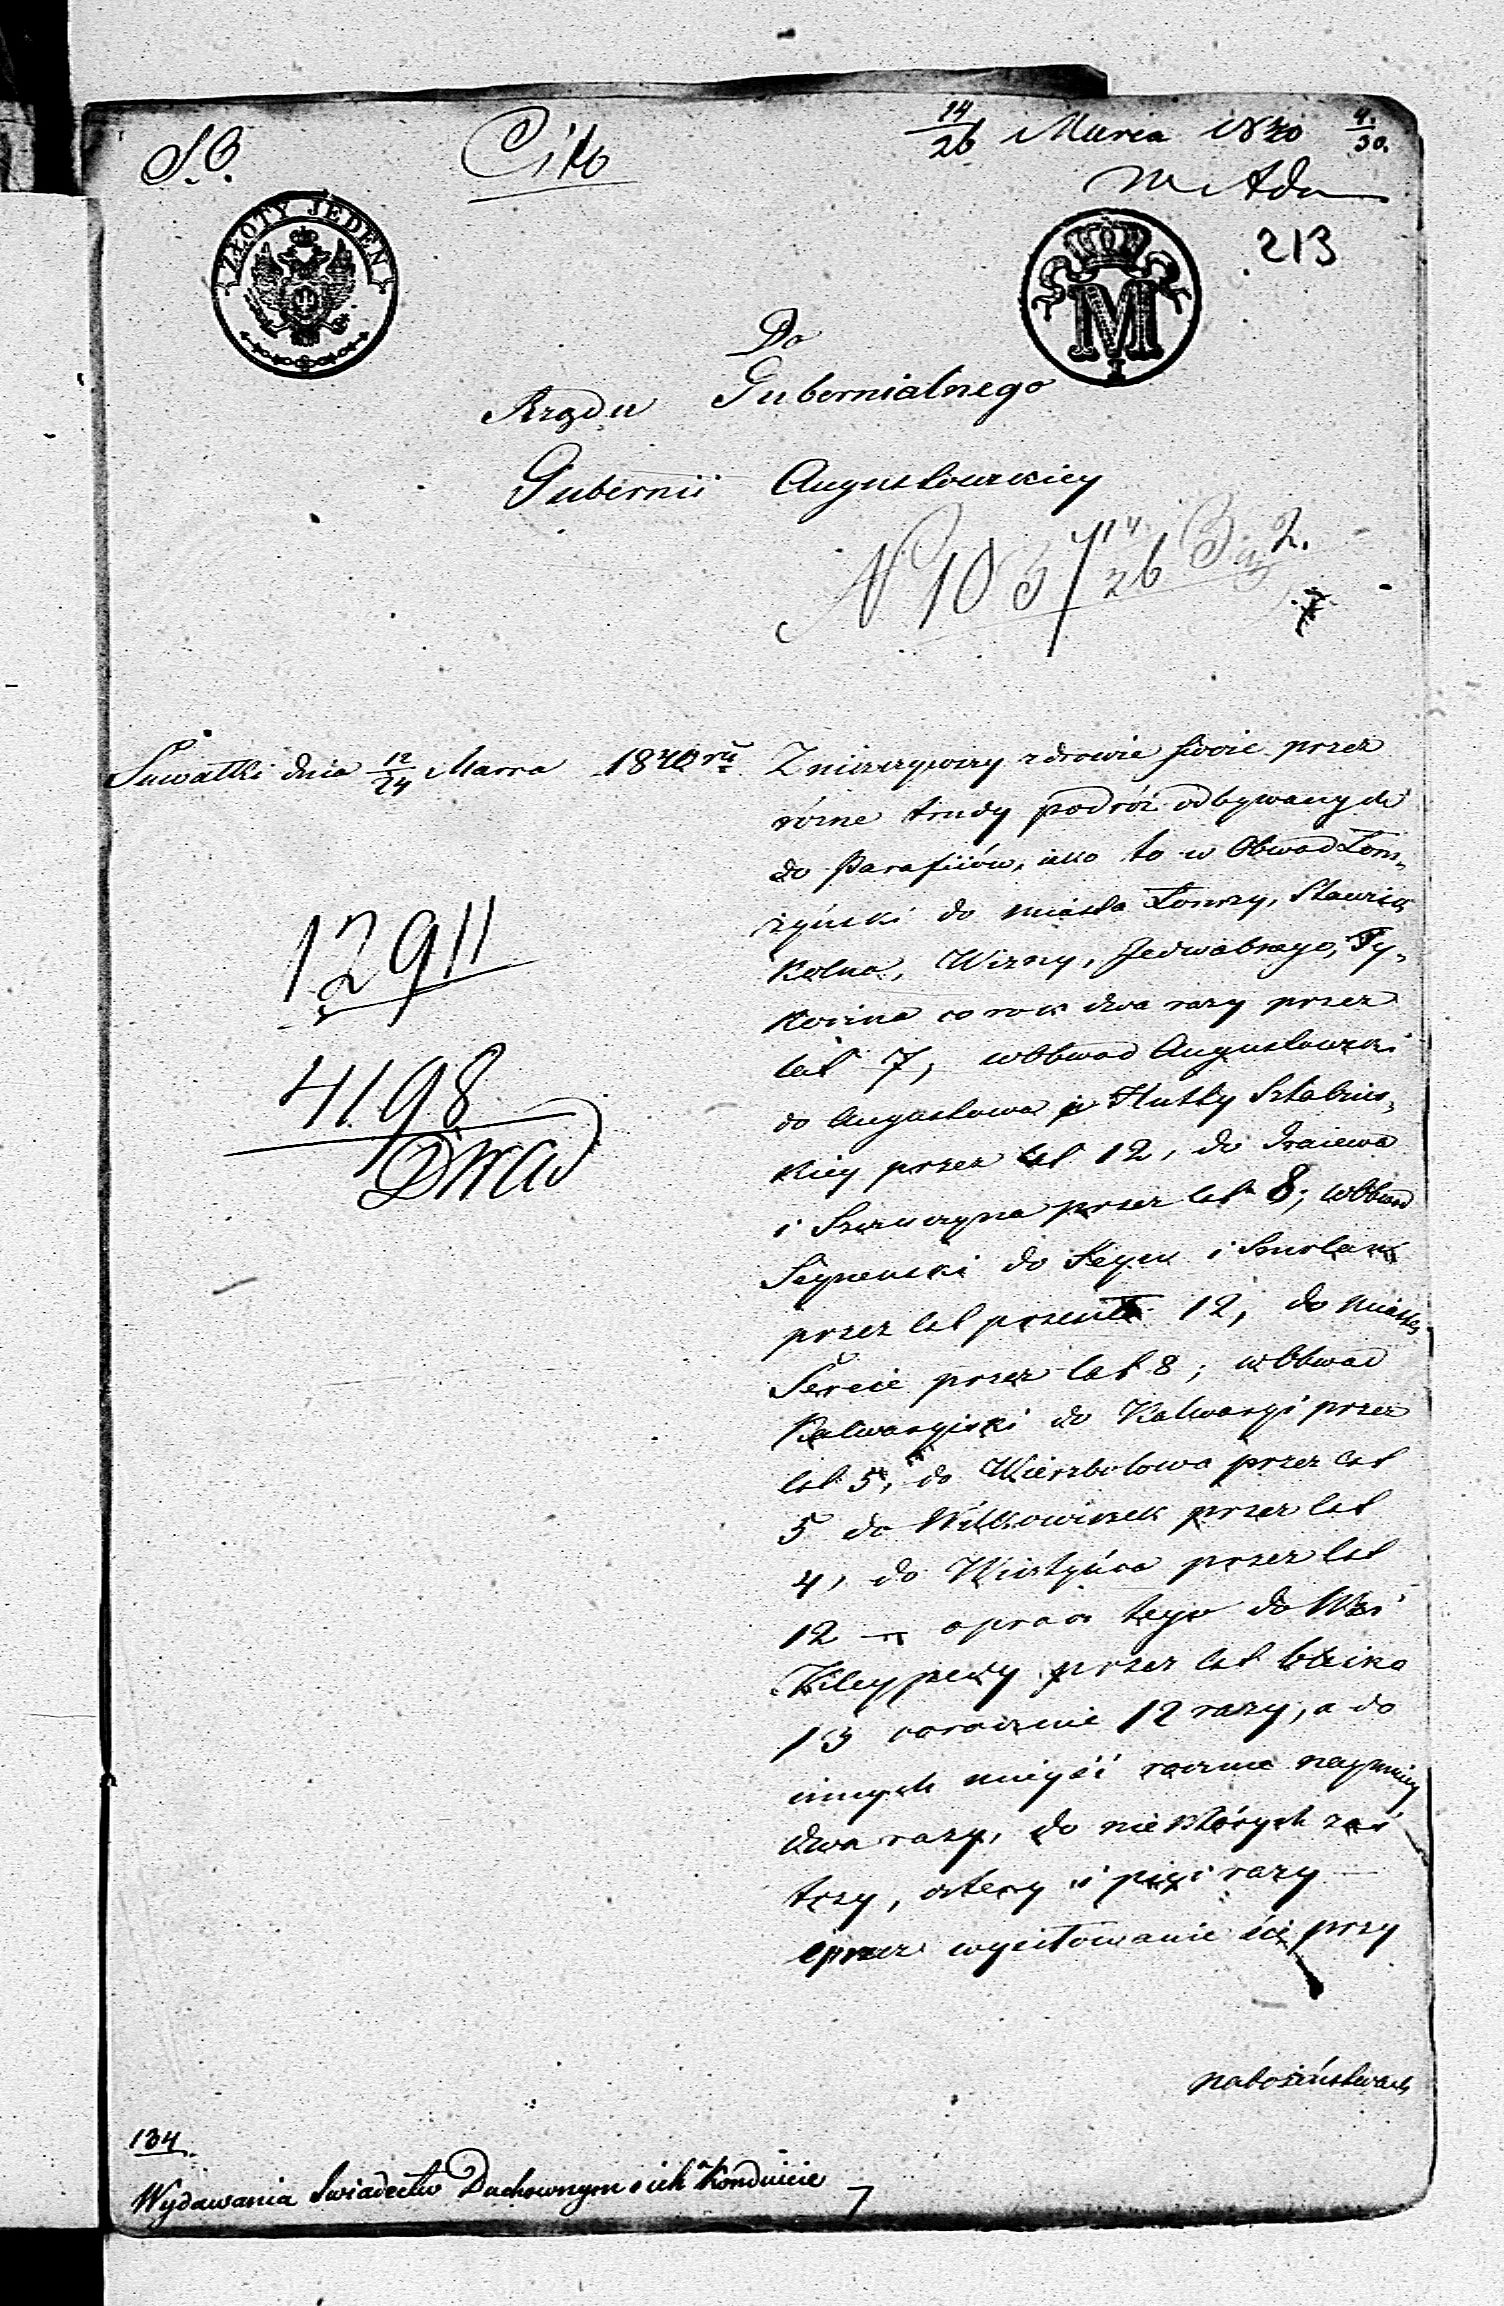 S.B.
Cito
14/26 Marca 1840 4/30.
213
ZŁOTY JEDEN
M I
Do
Rządu Gubernialnego
Gubernii Augustowskiey
N 103 14/26
Suwałki dnia 12/24 Marca 1840 ru
12911
4198
Zniszczywszy zdrowie swoie przez
różne trudy podróż odbywanych
do Parafiiów, iako to w Obwod Łom-
żyński do miasta Łomży, Stawisk
Kolna, Wizny, Jedwabnego, Ty-
kocina co rok dwa razy przez
lat 7, w Obwod Augustowski
do Augustowa i Hutty Sztabins-
kiey przez lat 12, do Graiewa
i Szczuczyna przez lat 8; w Obwod
Seyneński do Seyn i Smolan
przez lat 12, do miasta
Sereie przez lat 8; w Obwod
Kalwaryiski do Kalwaryi przez
lat 5, do Wierzbołowa przez lat
5 do Wiłkowiszek przez lat
4, do Wisztyńca przez lat
12 – oprócz tego do Wsi
przez lat blizko
13 corocznie 12 razy, a do
innych mieyść rocznie naymniey
dwa razy, do niektórych zaś
trzy, cztery i pięć razy –
i przez wysilowanie się przy
nabożeństwach
134
Wydawania Swiadectw Duchownym o ich Konduicie
7